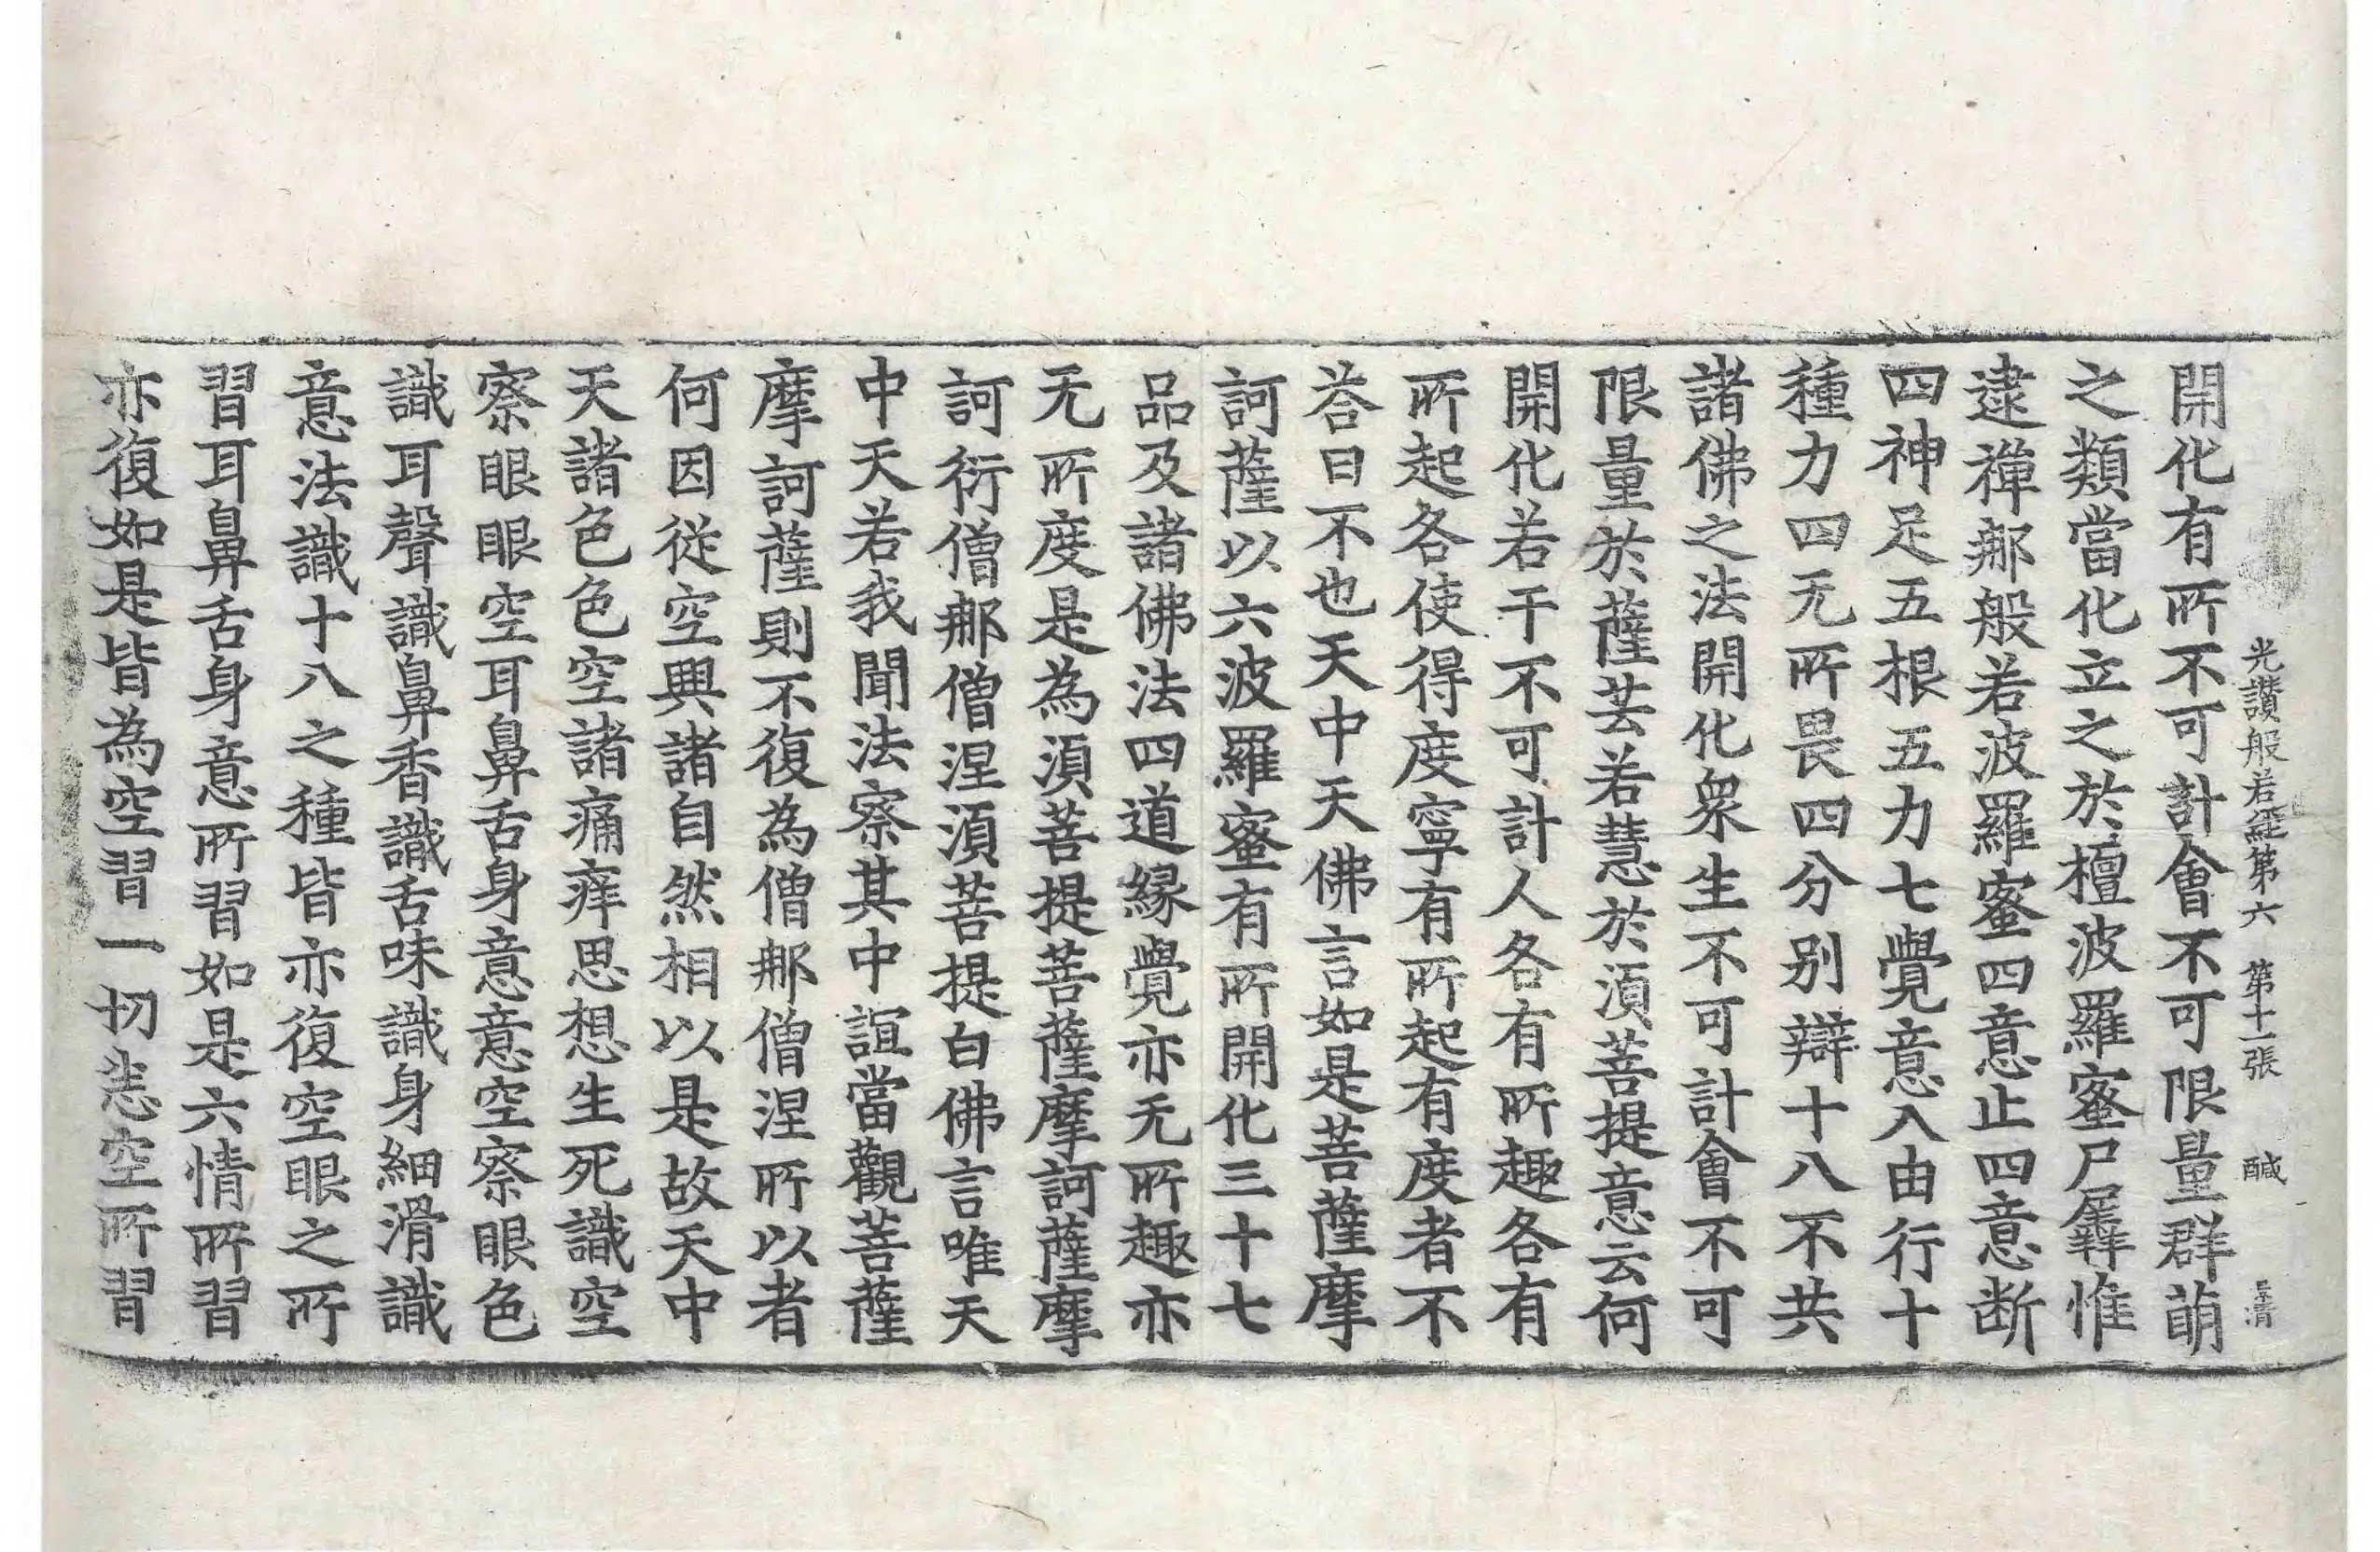 光讃般若經第六 第十一張 醎 清
開化有所不可計會不可限量群萌
之類當化立之於檀波羅蜜尸羼惟
逮禪那般若波羅蜜四意止四意断
四神足五根五力七覺意入由行十
種力四无所畏四分别辯十八不共
諸佛之法開化衆生不可計會不可
限量於薩芸若慧於湏菩提意云何
開化若干不可計人各有所趣各有
所起各使得度寧有所起有度者不
荅曰不也天中天佛言如是菩薩摩
訶薩以六波羅蜜有所開化三十七
品及諸佛法四道縁覺亦无所趣亦
无所度是為湏菩提菩薩摩訶薩摩
訶衍僧那僧涅湏菩提白佛言唯天
中天若我聞法察其中誼當觀菩薩
摩訶薩則不復為僧那僧涅所以者
何因從空興諸自然相以是故天中
天諸色色空諸痛痒思想生死識空
察眼眼空耳鼻舌身意意空察眼色
識耳聲識鼻香識舌味識身細滑識
意法識十八之種皆亦復空眼之所
習耳鼻舌身意所習如是六情所習
亦復如是皆為空習一切悉空所習